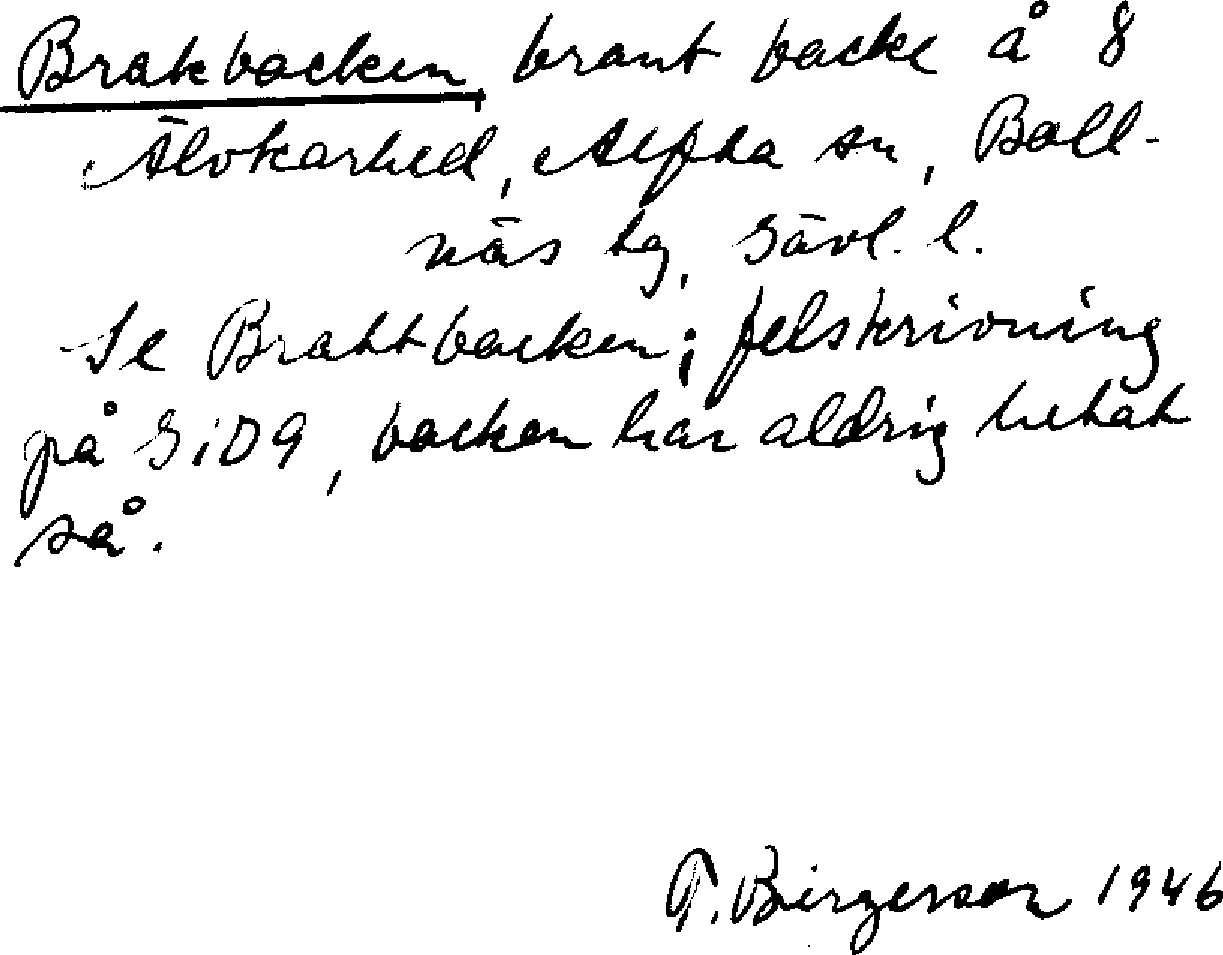 Brakbacken, brant backe å 8
Älvkarhed, Alfta sn, Boll-
näs tg, Gävl. l.
Se Brattbacken; felskrivning
på GiD9, backen har aldrig hetat
så.
T. Birgerson 1946